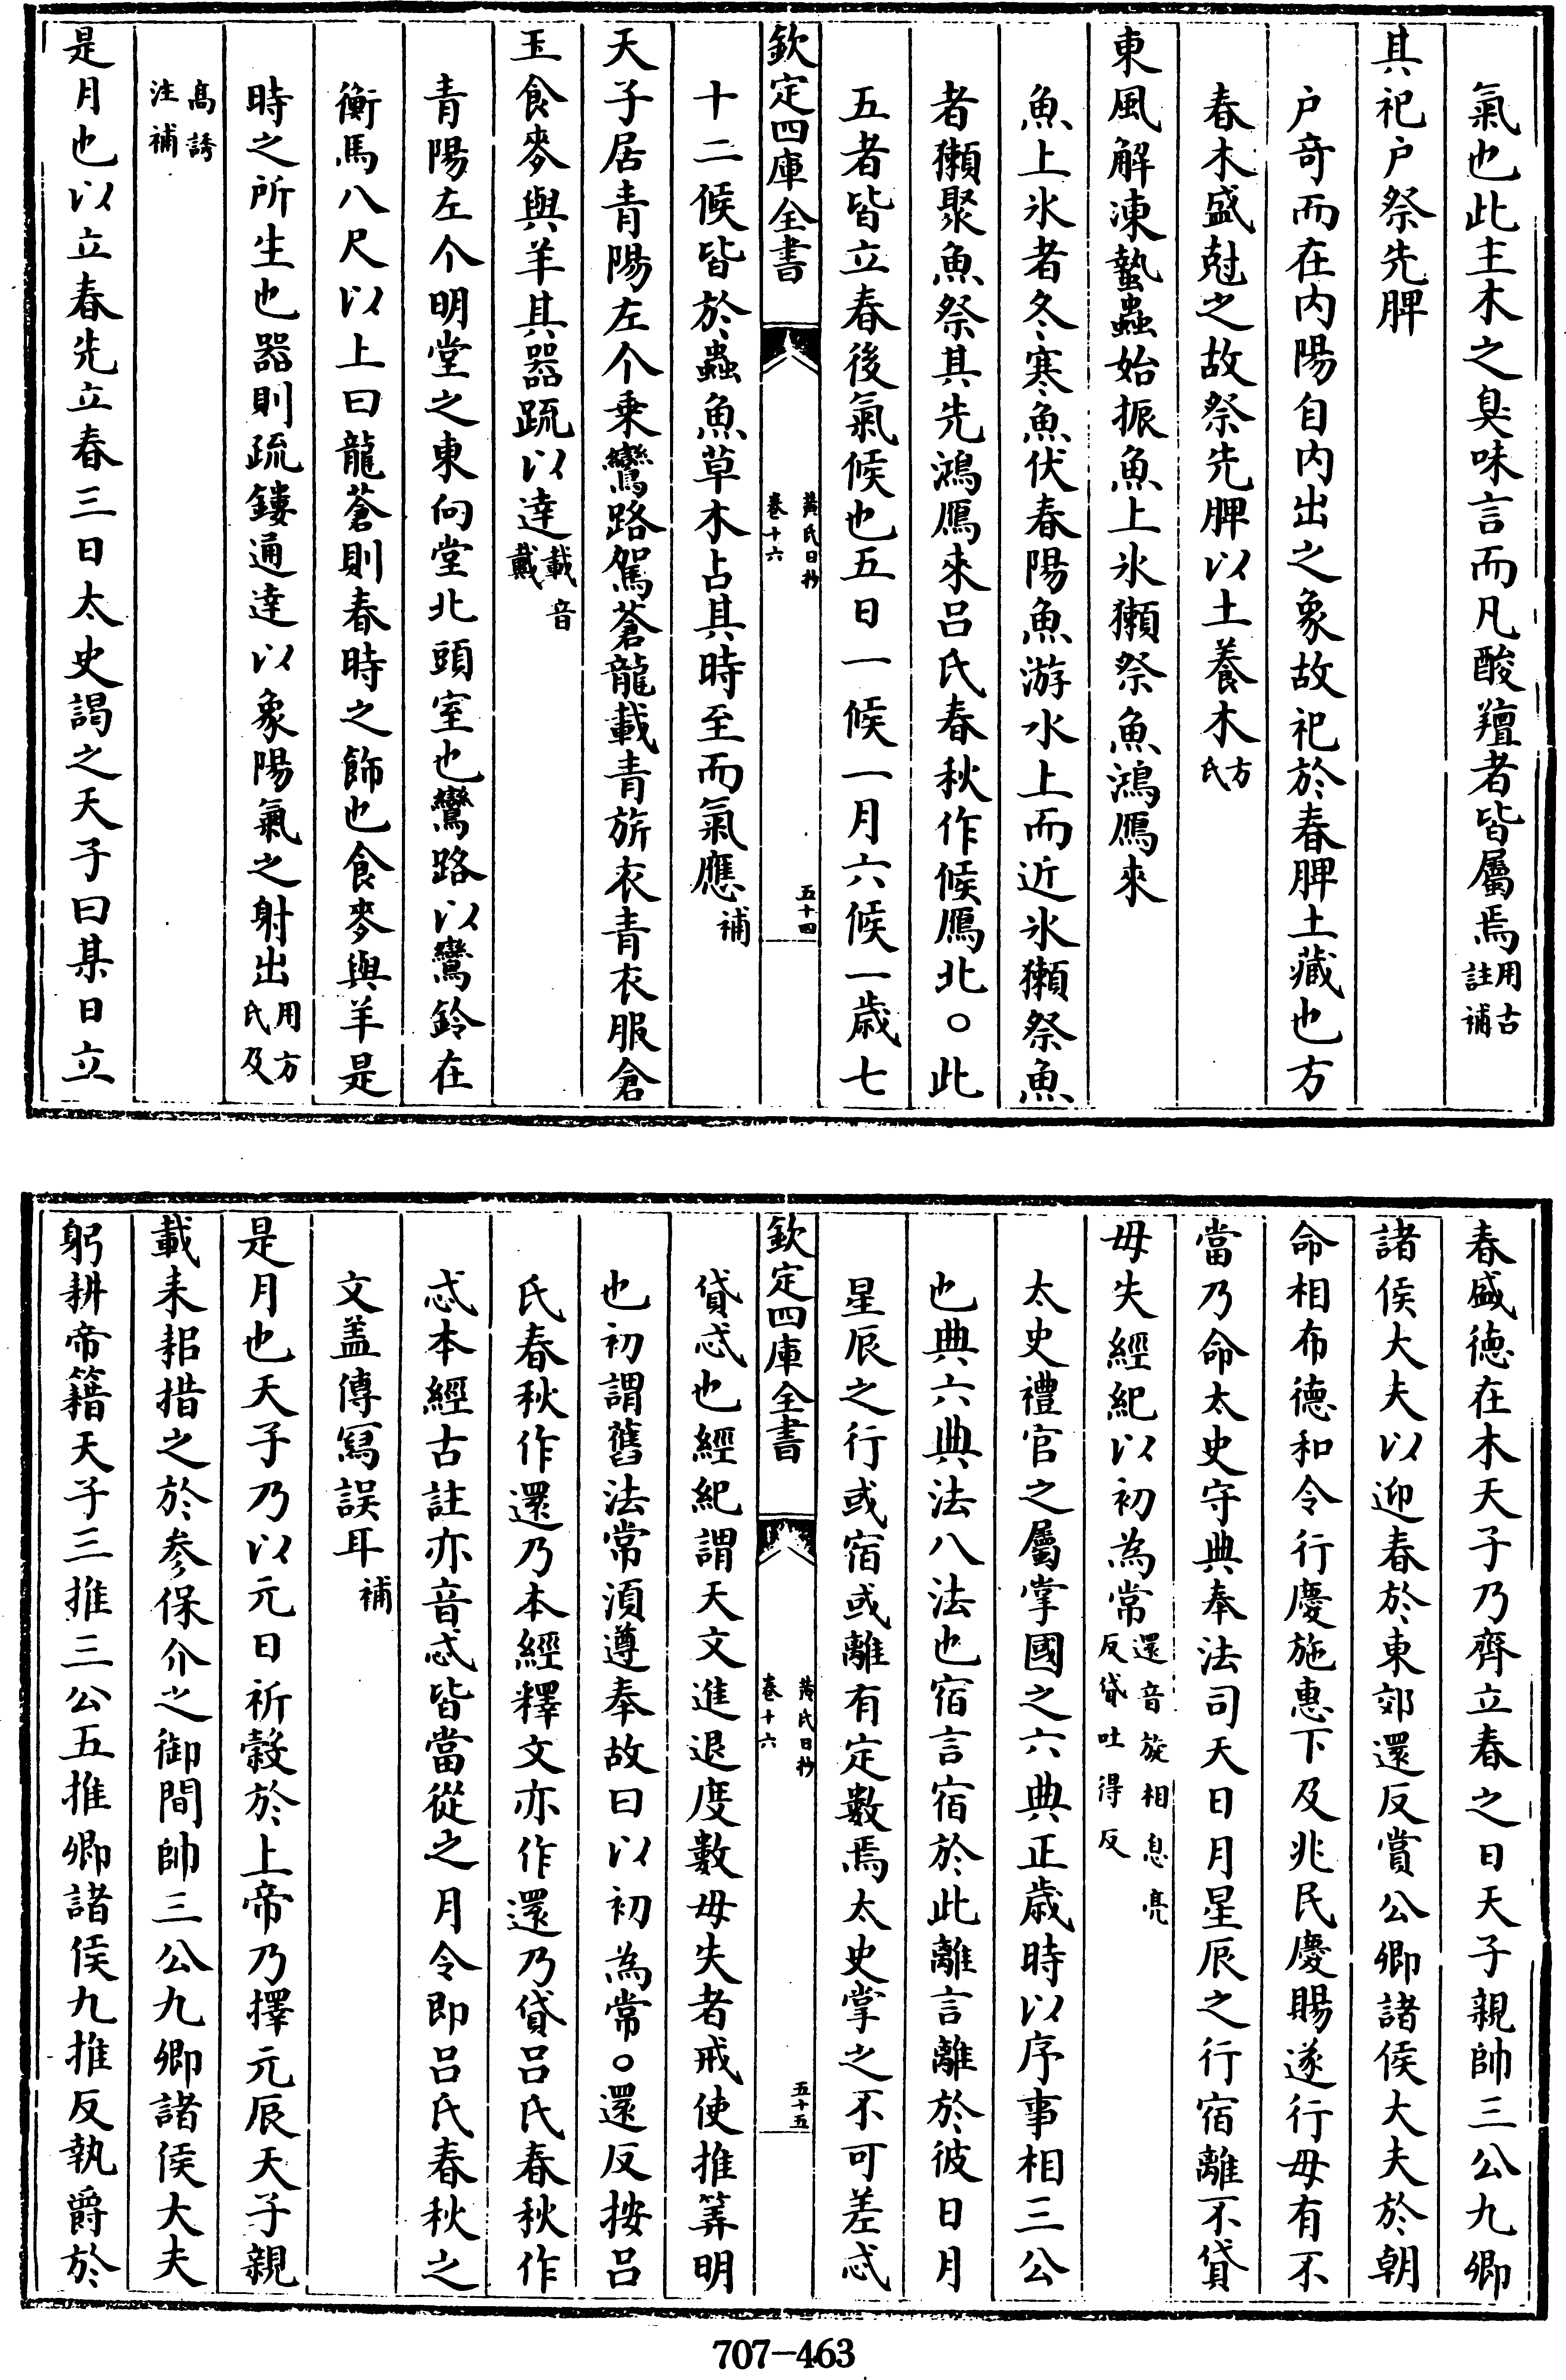 氣也此主木之臭味言而凡酸羶者皆屬焉用古註補
其祀户祭先脾
户竒而在内陽自内出之象故祀於春脾土藏也方
春木盛尅之故祭先脾以土養木方氏
東風解凍蟄蟲始振魚上氷獺祭魚鴻鴈來
魚上氷者冬寒魚伏春陽魚游水上而近氷獺祭魚
者獺聚魚祭其先鴻鴈來吕氏春秋作候鴈北○此
五者皆立春後氣候也五日一候一月六候一歲七
欽定四庫全書
黄氏日抄
卷十六
五十四
十二候皆於蟲魚草木占其時至而氣應補
天子居青陽左个乗鸞路駕蒼龍載青旂衣青衣服倉
玉食麥與羊其器疏以達載音戴
青陽左个明堂之東向堂北頭室也鸞路以鸞鈴在
衡馬八尺以上曰龍蒼則春時之飾也食麥與羊是
時之所生也器則疏鏤通達以象陽氣之射出用方氏及
高誘注補
是月也以立春先立春三日太史謁之天子曰某日立
春盛徳在木天子乃齊立春之日天子親帥三公九卿
諸侯大夫以迎春於東郊還反賞公卿諸侯大夫於朝
命相布德和令行慶施惠下及兆民慶賜遂行毋有不
當乃命太史守典奉法司天日月星辰之行宿離不貸
毋失經紀以初為常還音旋相息亮反貸吐得反
太史禮官之屬掌國之六典正歲時以序事相三公
也典六典法八法也宿言宿於此離言離於彼日月
星辰之行或宿或離有定數焉太史掌之不可差忒
欽定四庫全書
黄氏日抄
卷十六
五十五
貸忒也經紀謂天文進退度數毋失者戒使推筭明
也初謂舊法常湏遵奉故曰以初為常○還反按吕
氏春秋作還乃本經釋文亦作還乃貸吕氏春秋作
忒本經古註亦音忒皆當從之月令即吕氏春秋之
文盖傳寫誤耳補
是月也天子乃以元日祈穀於上帝乃擇元辰天子親
載耒耜措之於参保介之御間帥三公九卿諸侯大夫
躬耕帝籍天子三推三公五推卿諸侯九推反執爵於
707-463